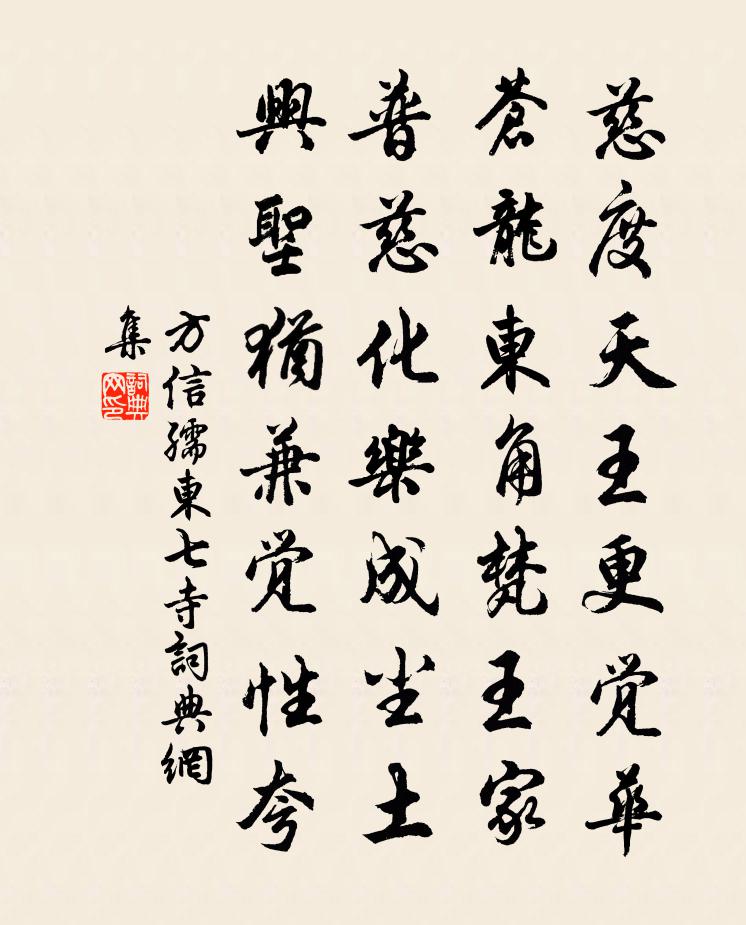 慈度天王更覚華
蒼龍東角梵王家
普慈化樂成尘土
興聖猶兼覚性夸
方信孺東七寺詞典網
集
詞典网印